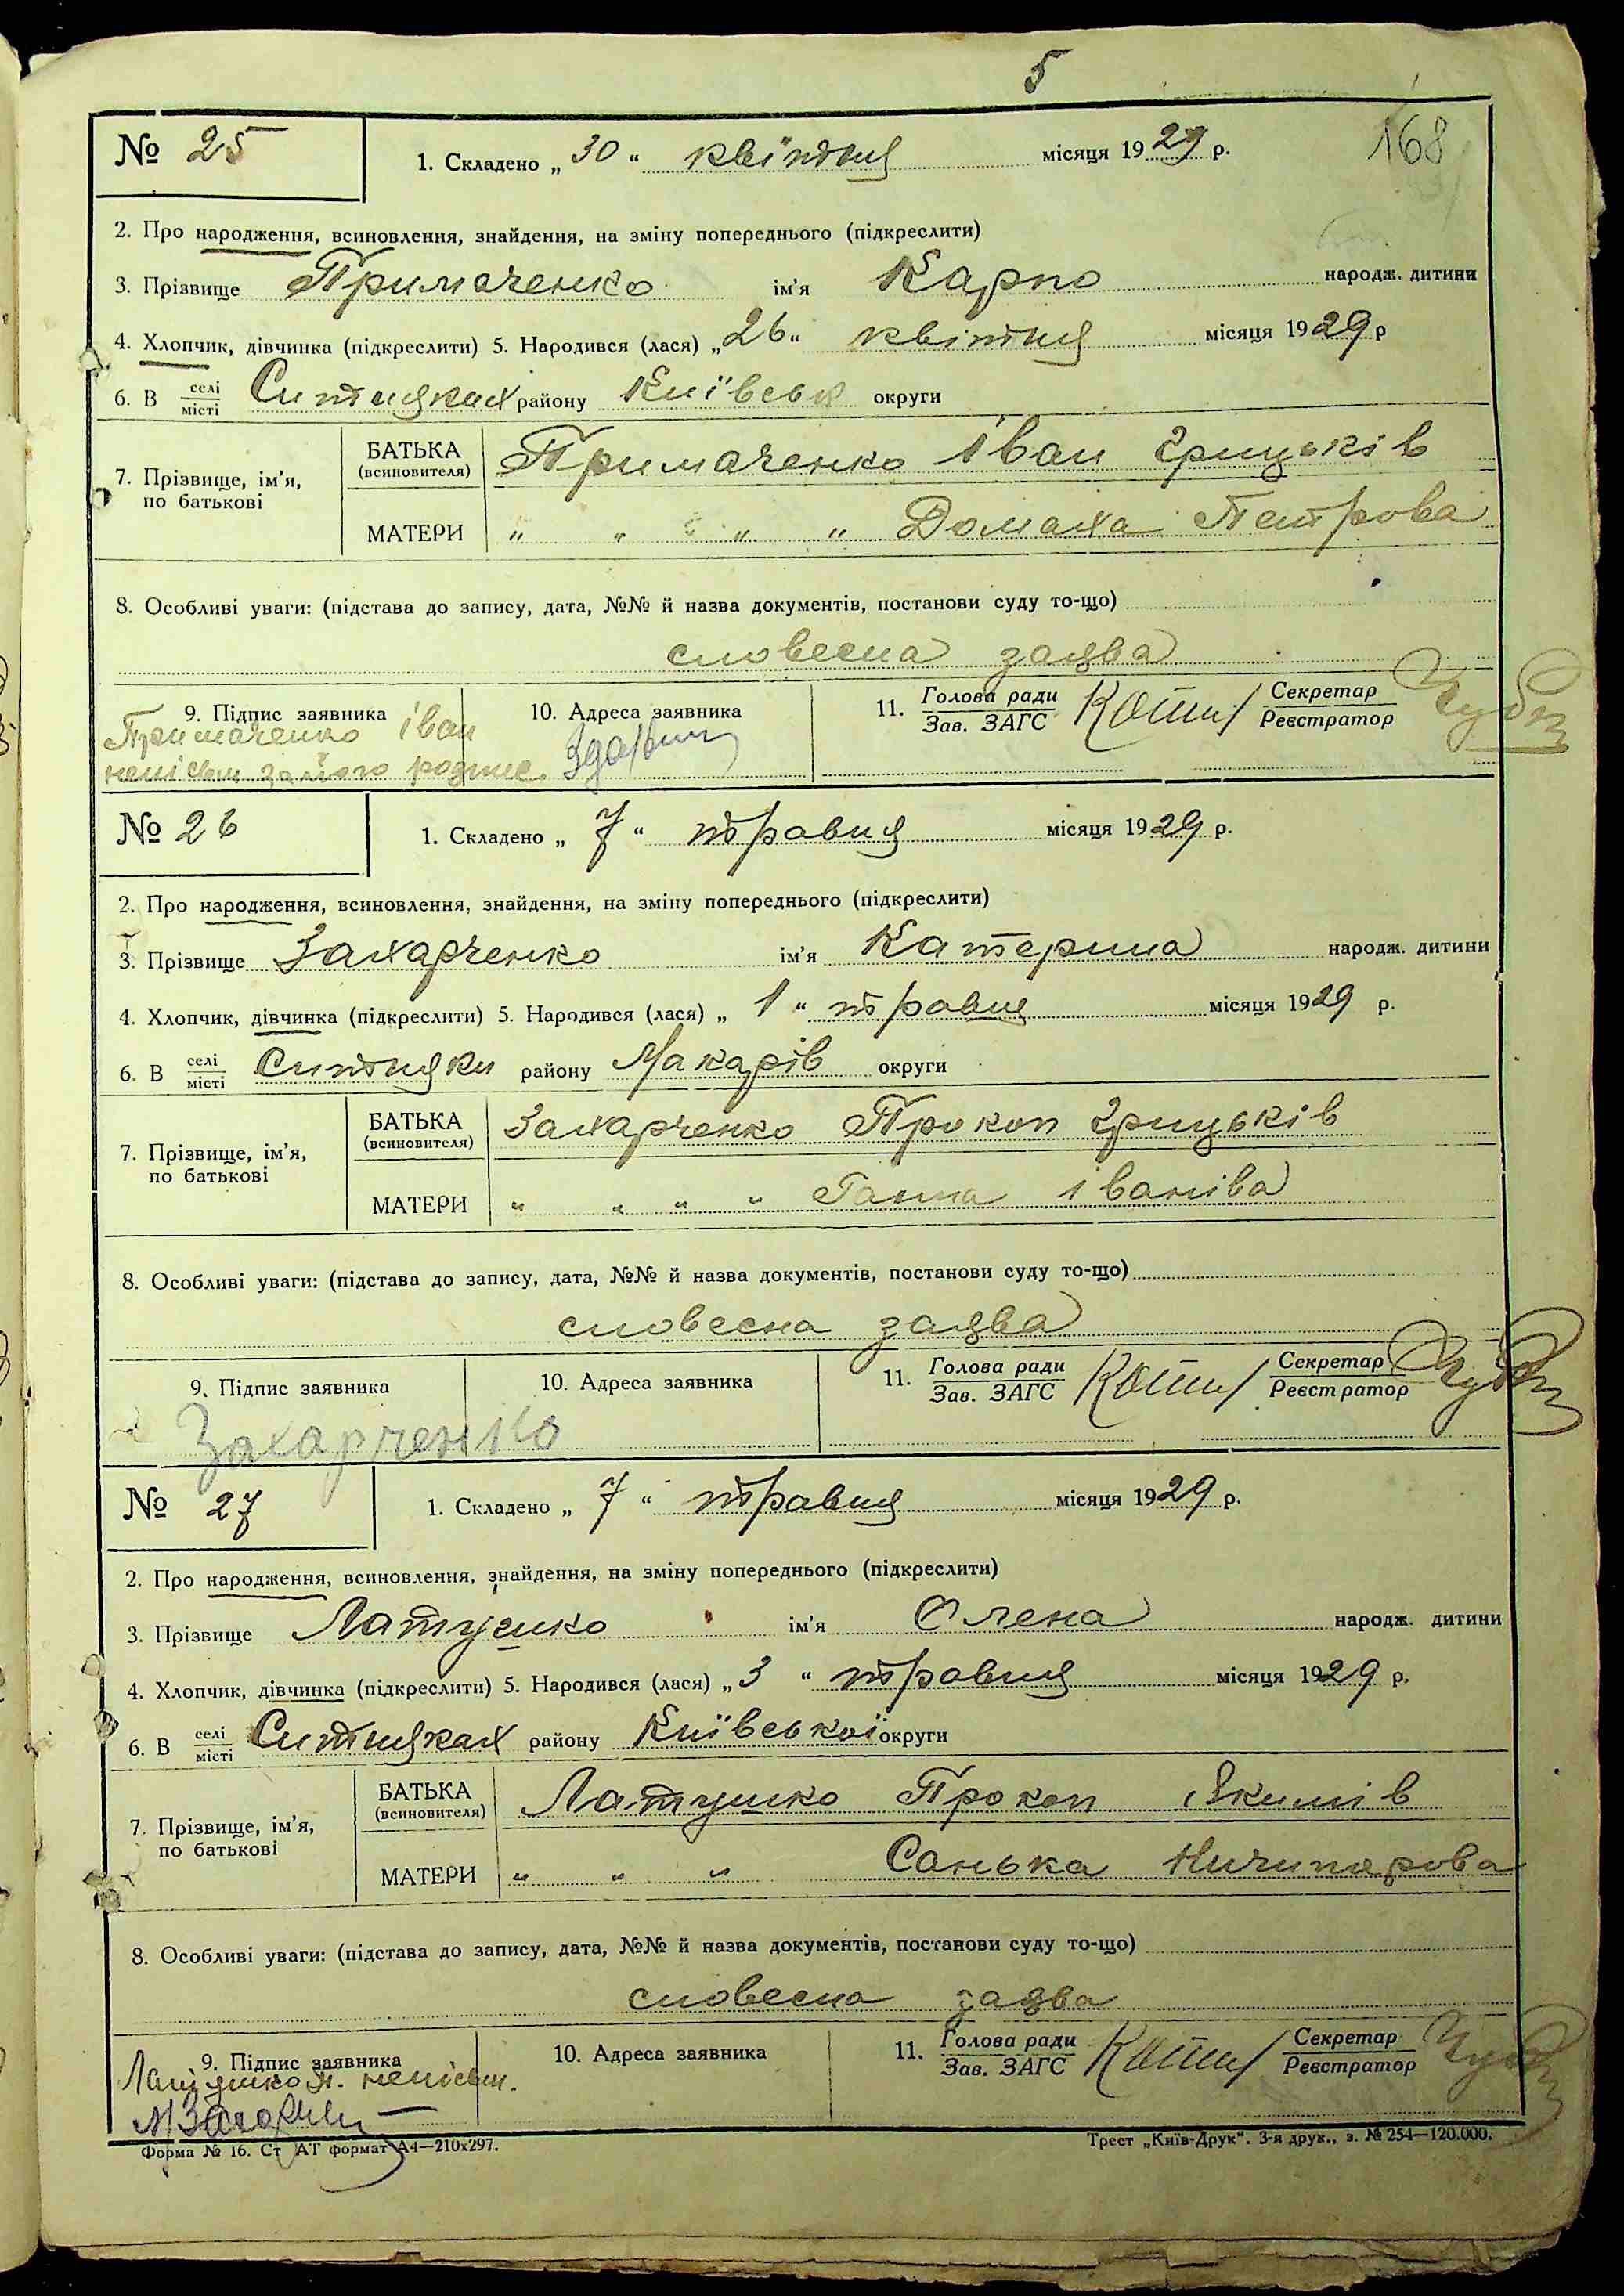 5
168
№ 25
1. Складено „30“ квітня місяця 1929 р.
2. Про народження, всиновлення, знайдення, на зміну попереднього (підкреслити)
3. Прізвище Примаченко ім'я Карпо народж. дитини
4. Хлопчик, дівчинка (підкреслити) 5. Народився (лася) „26“ квітня місяця 1929 р
6. В селі місті Ситняках району Київськ округи
7. Прізвище, ім'я, по батькові
БАТЬКА (всиновителя) Примаченко Іван Грицьків
МАТЕРИ „ „ „ „ „ Домаха Петрова
8. Особливі уваги: (підстава до запису, дата, №№ й назва документів, постанови суду то-що)
словесна заява
9. Підпис заявника 10. Адреса заявника 11. Голова ради Зав. ЗАГС Секретар Реєстратор
Примаченко Іван
непісьм за його розпис
№ 26
1. Складено „7“ травня місяця 1929 р.
2. Про народження, всиновлення, знайдення, на зміну попереднього (підкреслити)
3. Прізвище Захарченко ім'я Катерина народж. дитини
4. Хлопчик, дівчинка (підкреслити) 5. Народився (лася) „1“ травня місяця 1929 р.
6. В селі місті Ситняки району Макарів округи
7. Прізвище, ім'я, по батькові
БАТЬКА (всиновителя) Захарченко Прокоп Грицьків
МАТЕРИ „ „ „ „ Ганна Іванівa
8. Особливі уваги: (підстава до запису, дата, №№ й назва документів, постанови суду то-що)
словесна заява
9. Підпис заявника 10. Адреса заявника 11. Голова ради Зав. ЗАГС Секретар Реєстратор
Захарченко
№ 27
1. Складено „7“ травня місяця 1929 р.
2. Про народження, всиновлення, знайдення, на зміну попереднього (підкреслити)
3. Прізвище Латушко ім'я Олена народж. дитини
4. Хлопчик, дівчинка (підкреслити) 5. Народився (лася) „3“ травня місяця 1929 р.
6. В селі місті Ситняках району Київської округи
7. Прізвище, ім'я, по батькові
БАТЬКА (всиновителя) Латушко Прокоп Якимів
МАТЕРИ „ „ „ Санька Ничипорова
8. Особливі уваги: (підстава до запису, дата, №№ й назва документів, постанови суду то-що)
словесна заява
9. Підпис заявника 10. Адреса заявника 11. Голова ради Зав. ЗАГС Секретар Реєстратор
Латушко П. непісьм.
Форма № 16. Ст АТ формат А4—210х297.
Трест „Київ-Друк“. 3-я друк., з. № 254—120.000.